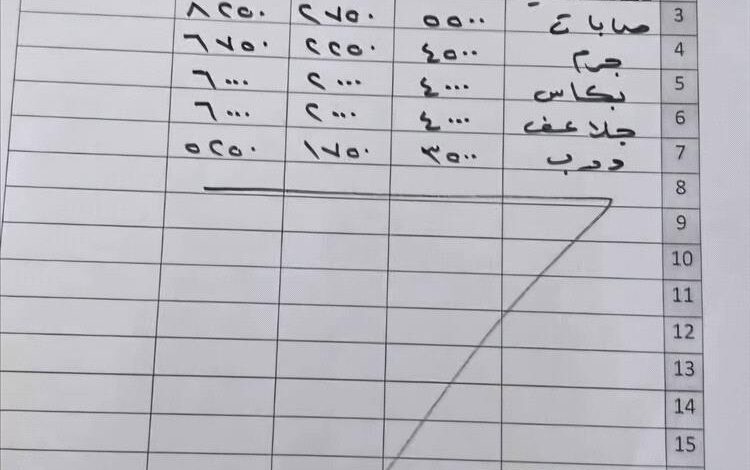 3 صابات ٥٥٠٠ ٢٧٥٠ ٨٢٥٠
4 جرم ٤٥٠٠ ٢٢٥٠ ٦٧٥٠
5 بكاس ٤٠٠٠ ٢٠٠٠ ٦٠٠٠
6 جلاعف ٤٠٠٠ ٢٠٠٠ ٦٠٠٠
7 ددب ٣٥٠٠ ١٧٥٠ ٥٢٥٠
8
9
10
11
12
13
14
15